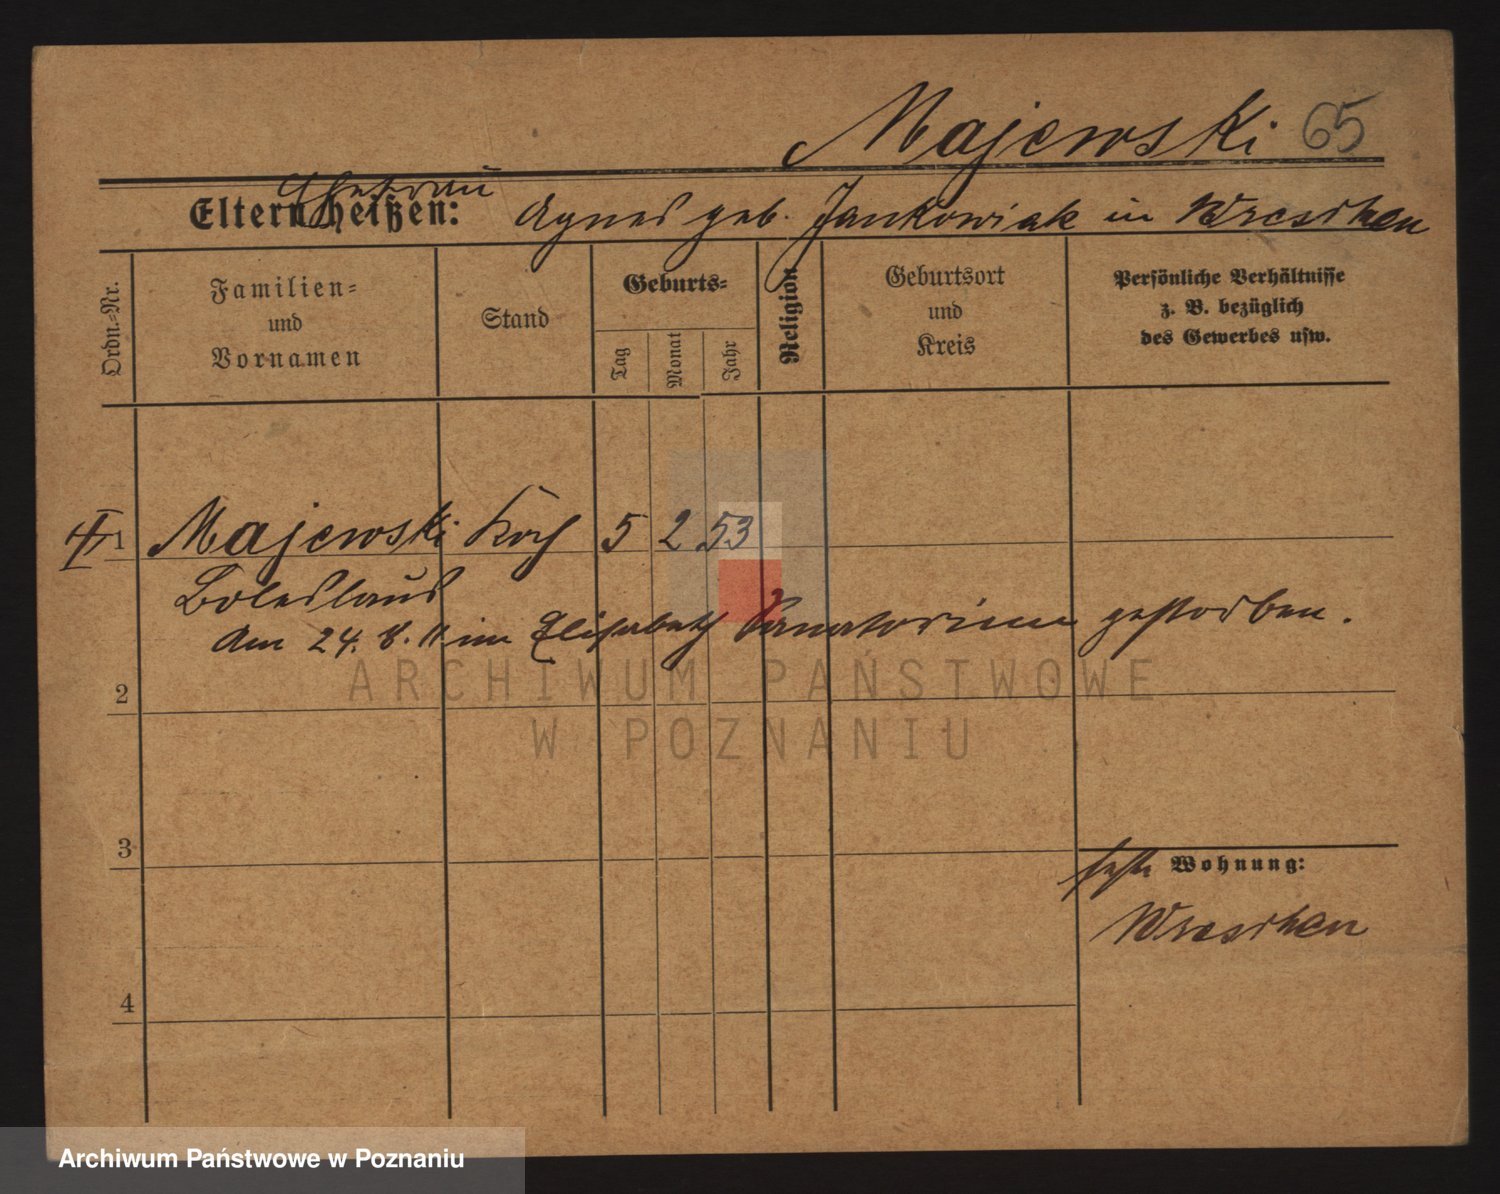 Majewski 65
Ehefrau
Eltern heißen: Agnes geb. Jankowiak in Wreschen
Ordn.-Nr.
Familien-
und
Vornamen
Stand
Geburts-
Tag
Monat
Jahr
Religion
Geburtsort
und
Kreis
Persönliche Verhältnisse
z. B. bezüglich
des Gewerbes usw.
1 Majewski Koch 5 2 53
Boleslaus
Am 24. 8. 11 im Elisabeth Sanatorium gestorben.
2
ARCHIWUM PAŃSTWOWE
W POZNANIU
3
feste Wohnung:
Wreschen
4
Archiwum Państwowe w Poznaniu